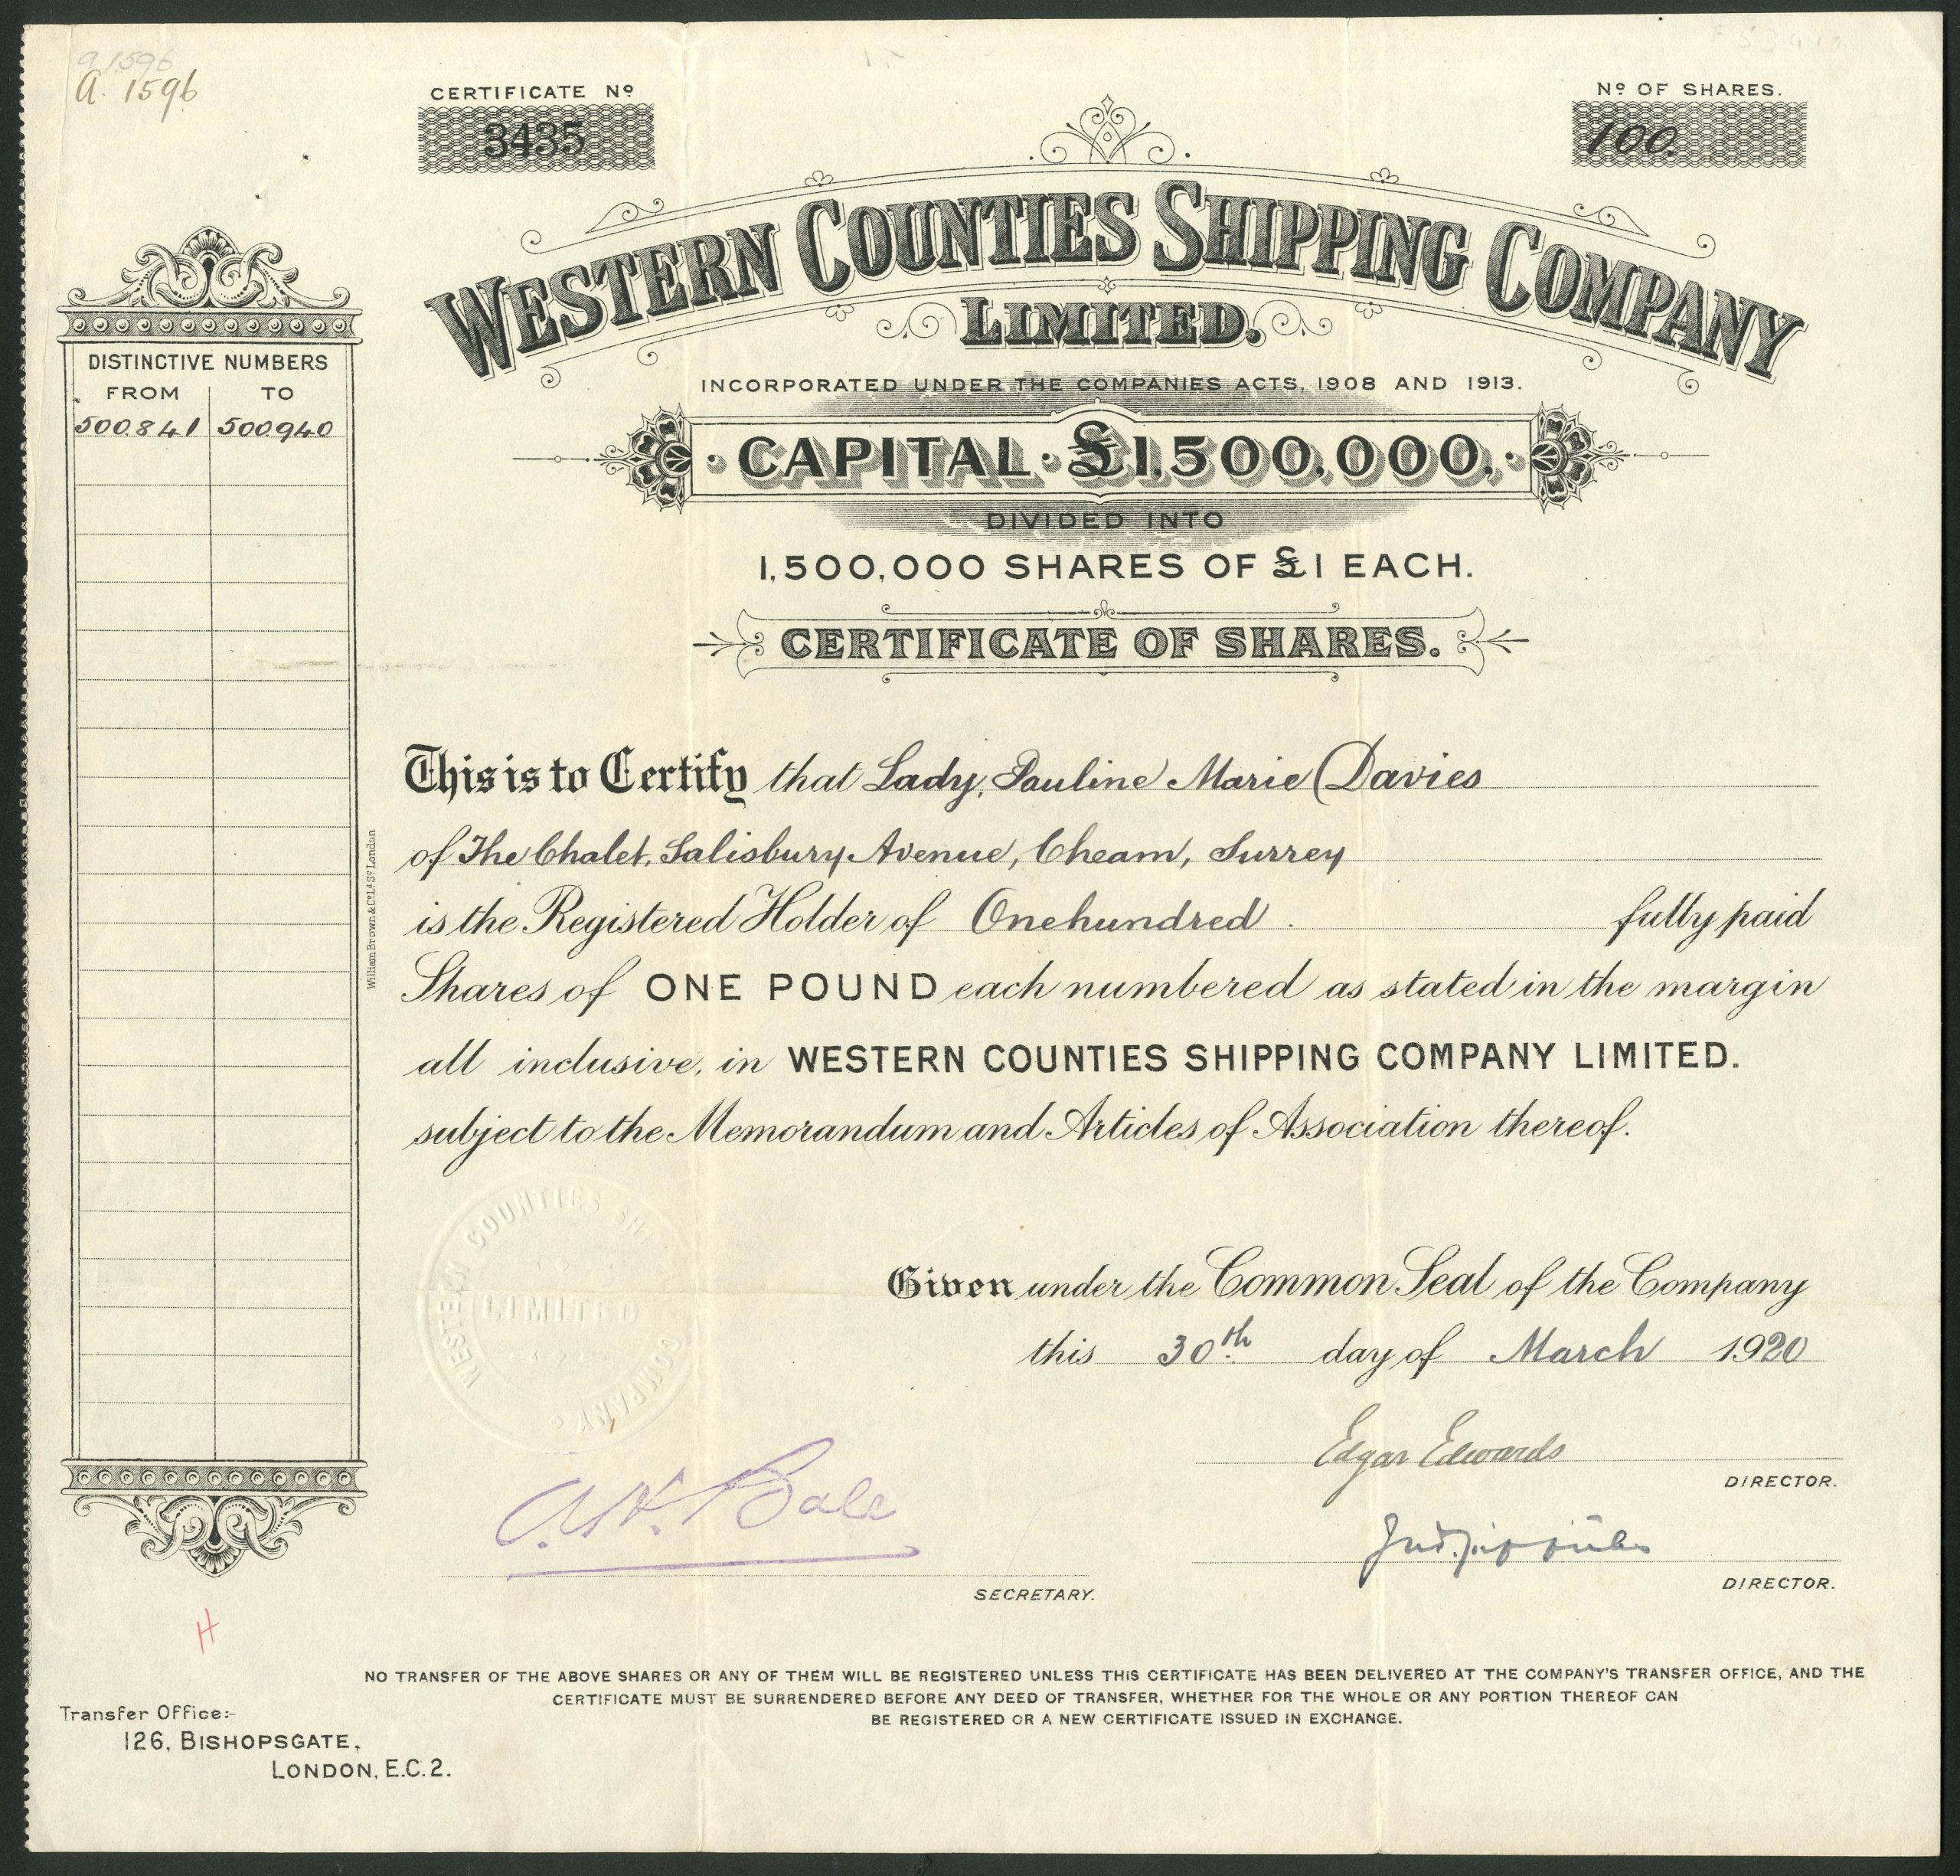 a 1596
a. 1596
CERTIFICATE Nº
3435
Nº OF SHARES.
100.
WESTERN COUNTIES SHIPPING COMPANY
LIMITED.
INCORPORATED UNDER THE COMPANIES ACTS, 1908 AND 1913.
CAPITAL · £1,500,000.
DIVIDED INTO
1,500,000 SHARES OF £1 EACH.
CERTIFICATE OF SHARES.
DISTINCTIVE NUMBERS
FROM TO
500841 500940
This is to Certify that Lady, Pauline Marie Davies
of The Chalet, Salisbury Avenue, Cheam, Surrey
is the Registered Holder of Onehundred. fully paid
Shares of ONE POUND each numbered as stated in the margin
all inclusive, in WESTERN COUNTIES SHIPPING COMPANY LIMITED.
subject to the Memorandum and Articles of Association thereof.
William Brown & Co. Ltd. London
WESTERN COUNTIES SH COMPANY
LIMITED
Given under the Common Seal of the Company
this 30th day of March 1920
Edgar Edwards
DIRECTOR.
Bale
SECRETARY.
DIRECTOR.
H
NO TRANSFER OF THE ABOVE SHARES OR ANY OF THEM WILL BE REGISTERED UNLESS THIS CERTIFICATE HAS BEEN DELIVERED AT THE COMPANY'S TRANSFER OFFICE, AND THE
CERTIFICATE MUST BE SURRENDERED BEFORE ANY DEED OF TRANSFER, WHETHER FOR THE WHOLE OR ANY PORTION THEREOF CAN
BE REGISTERED OR A NEW CERTIFICATE ISSUED IN EXCHANGE.
Transfer Office:-
126, BISHOPSGATE,
LONDON, E.C.2.